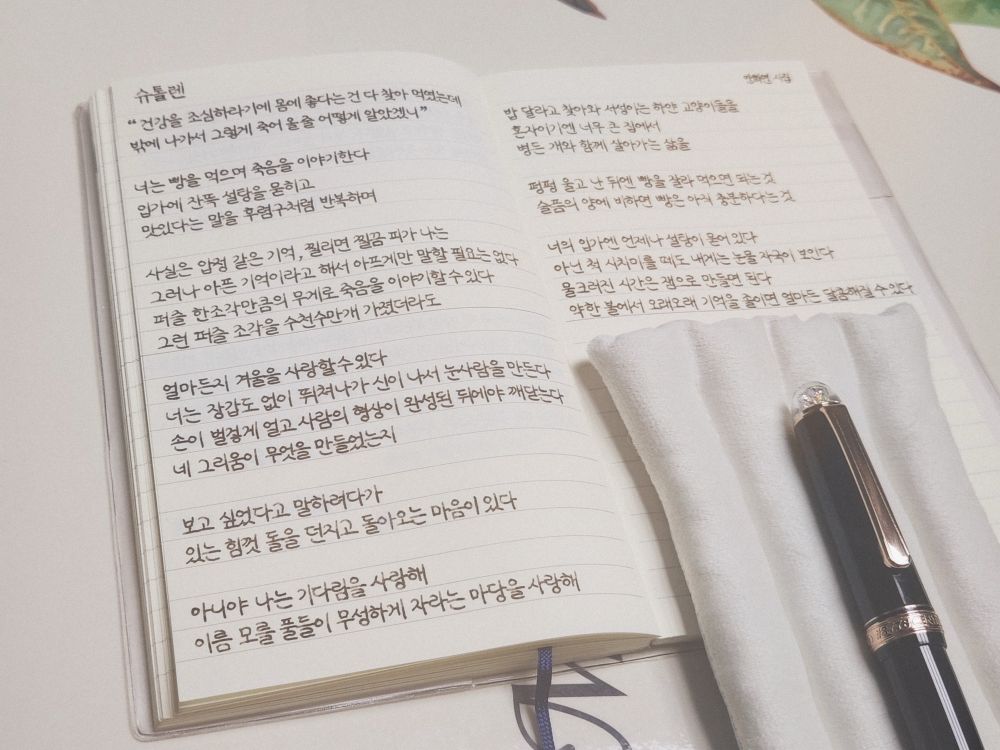 슈톨렌
“건강을 조심하라기에 몸에 좋다는 건 다 찾아 먹였는데
밖에 나가서 그렇게 죽어 올 줄 어떻게 알았겠니”
너는 빵을 먹으며 죽음을 이야기한다
입가에 잔뜩 설탕을 묻히고
맛있다는 말을 후렴구처럼 반복하며
사실은 압정 같은 기억, 찔리면 찔끔 피가 나는
그러나 아픈 기억이라고 해서 아프게만 말할 필요는 없다
퍼즐 한조각만큼의 무게로 죽음을 이야기할 수 있다
그런 퍼즐 조각을 수천수만개 가졌더라도
얼마든지 겨울을 사랑할 수 있다
너는 장갑도 없이 뛰쳐나가 신이 나서 눈사람을 만든다
손이 벌겋게 얼고 사람의 형상이 완성된 뒤에야 깨닫는다
네 그리움이 무엇을 만들었는지
보고 싶었다고 말하려다가
있는 힘껏 돌을 던지고 돌아오는 마음이 있다
아니야 나는 기다림을 사랑해
이름 모를 풀들이 무성하게 자라는 마당을 사랑해
안희연 시집
밥 달라고 찾아와 서성이는 하얀 고양이들을
혼자이기엔 너무 큰 집에서
병든 개와 함께 살아가는 삶을
펑펑 울고 난 뒤엔 빵을 잘라 먹으면 되는 것
슬픔의 양에 비하면 빵은 아직 충분하다는 것
너의 입가엔 언제나 설탕이 묻어 있다
아닌 척 시치미를 떼도 내게는 눈물 자국이 보인다
물크러진 시간은 잼으로 만들면 된다
약한 불에서 오래오래 기억을 졸이면 얼마든 달콤해질 수 있다